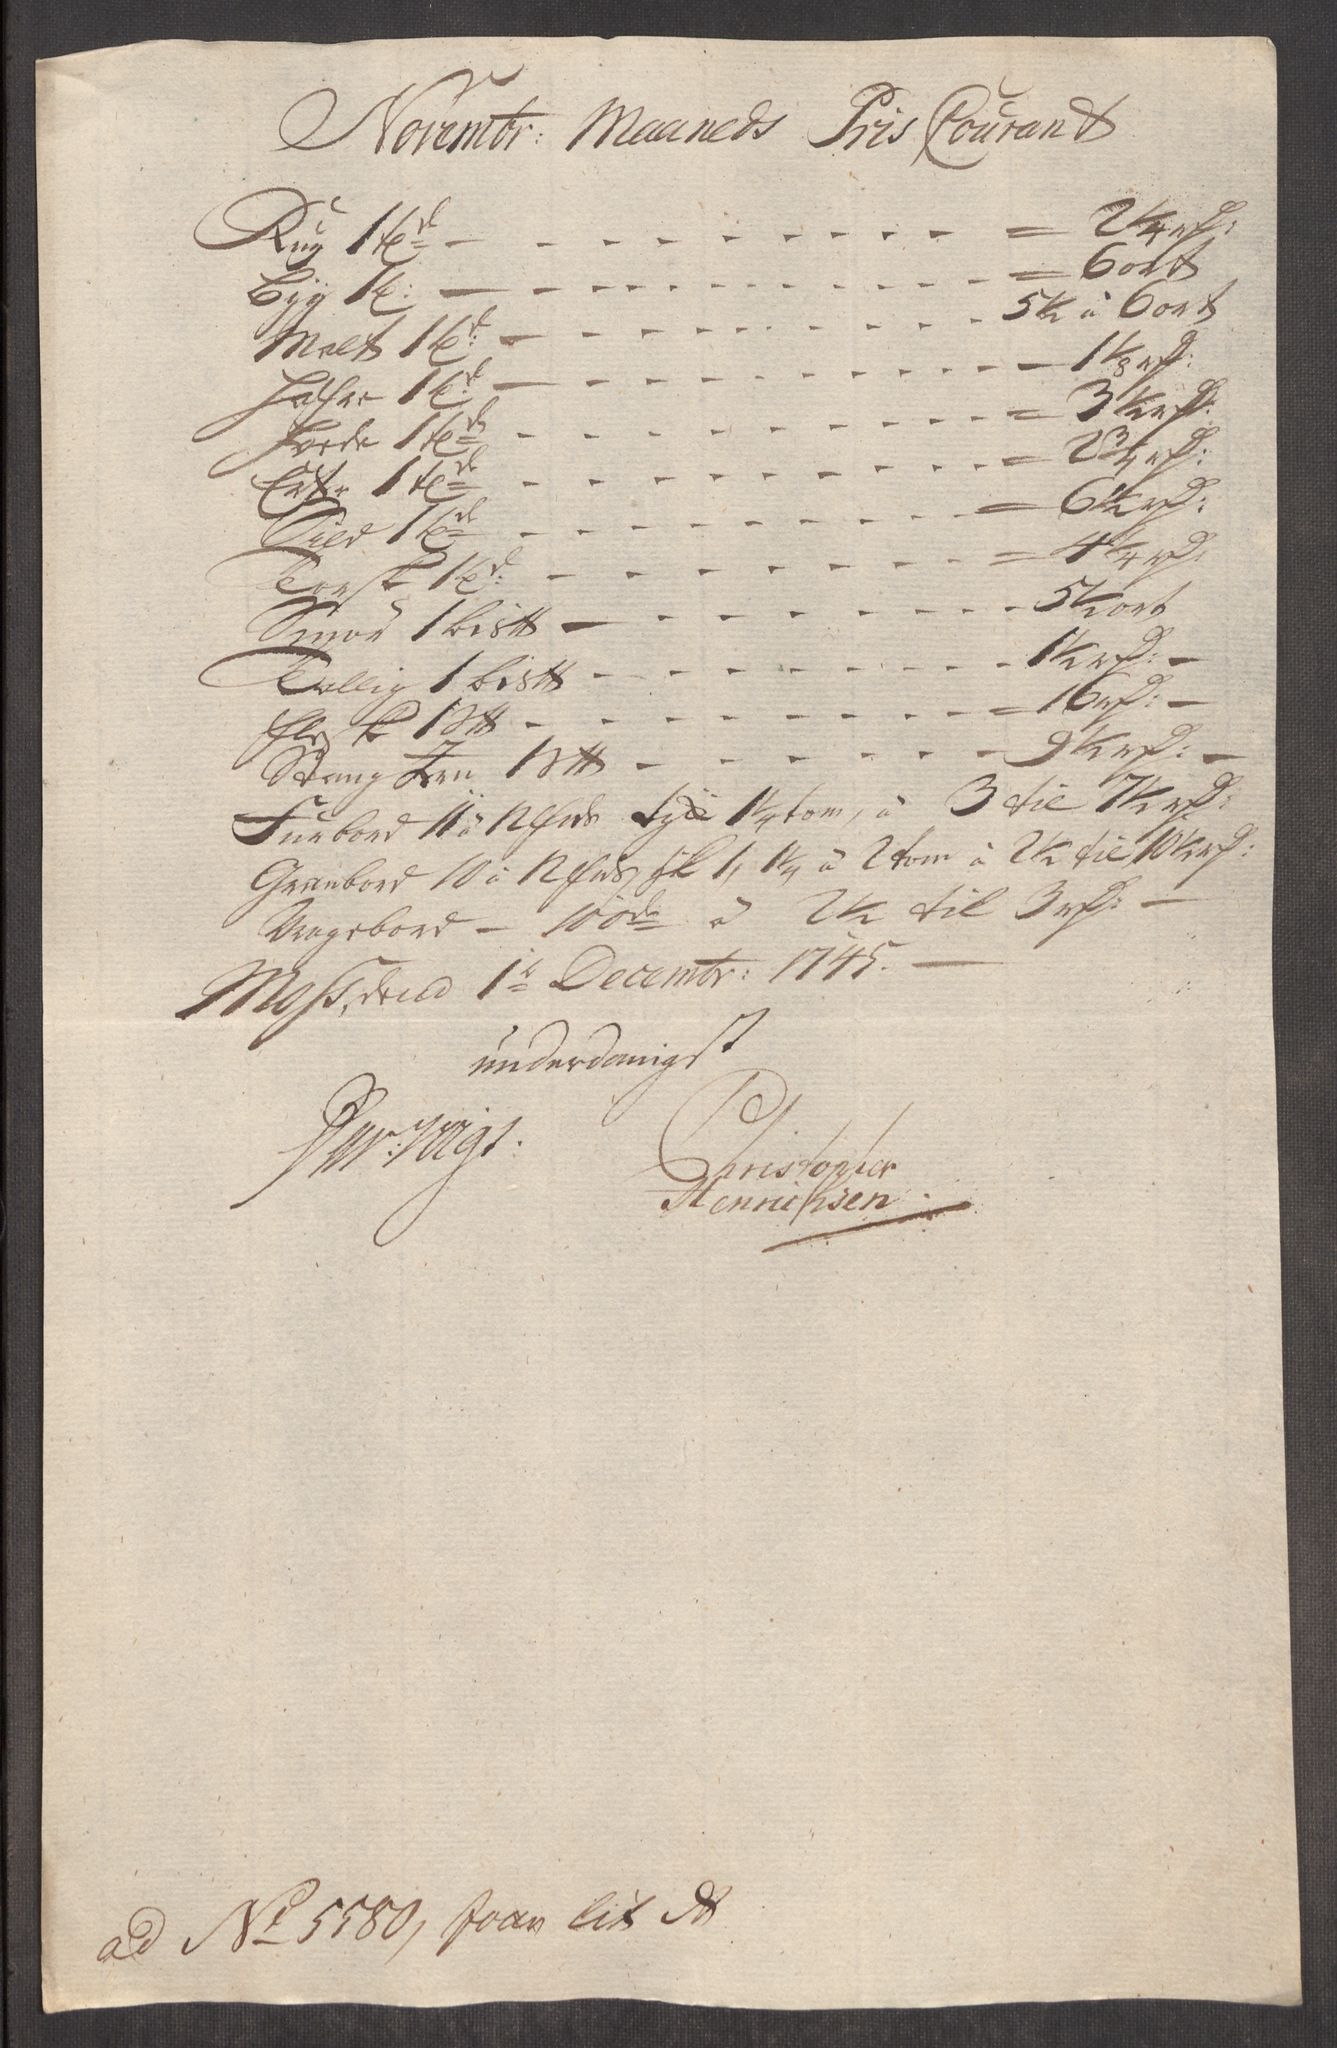 Novembr: Maaneds Pris Courandt
Rug 1 td - - - - - - - - - - = 2 1/4 rd:
Byg 1 t: - - - - - - - - - - = 6 ort
Malt 1 td: - - - - - - - - - 5 1/2 à 6 ort
Hafre 1 td: - - - - - - - - - 1 1/8 rd:
Hvede 1 td - - - - - - - - - = 3 1/2 rd:
Erter 1 td - - - - - - - - - = 2 3/4 rd:
Sild 1 td - - - - - - - - - = 6 1/2 rd:
Torsk 1 td: - - - - - - - - = 4 1/4 rd:
Smør 1 bistt - - - - - - - - 5 1/2 ort
Tallig 1 bistt - - - - - - - - 1 1/2 rd: -
Flesk 1 Stt - - - - - - - - = 16 rd: -
Stang Jern 1 Stt - - - - - - - 9 1/2 rd: -
Furbord 11 à 12 fods tyk 1 1/4 tom, à 3 til 7 1/2 rd:
Granbord 10 à 12 fods, tyk 1, 1 1/4 à 2 tom à 2 1/2 til 10 1/2 rd:
Vragebord - 100de à 2 1/2 til 3 rd: -
Moss, d 1te Decembr: 1745. -
underdanigst
Christopher
Henrichsen
ad No 5580, lit